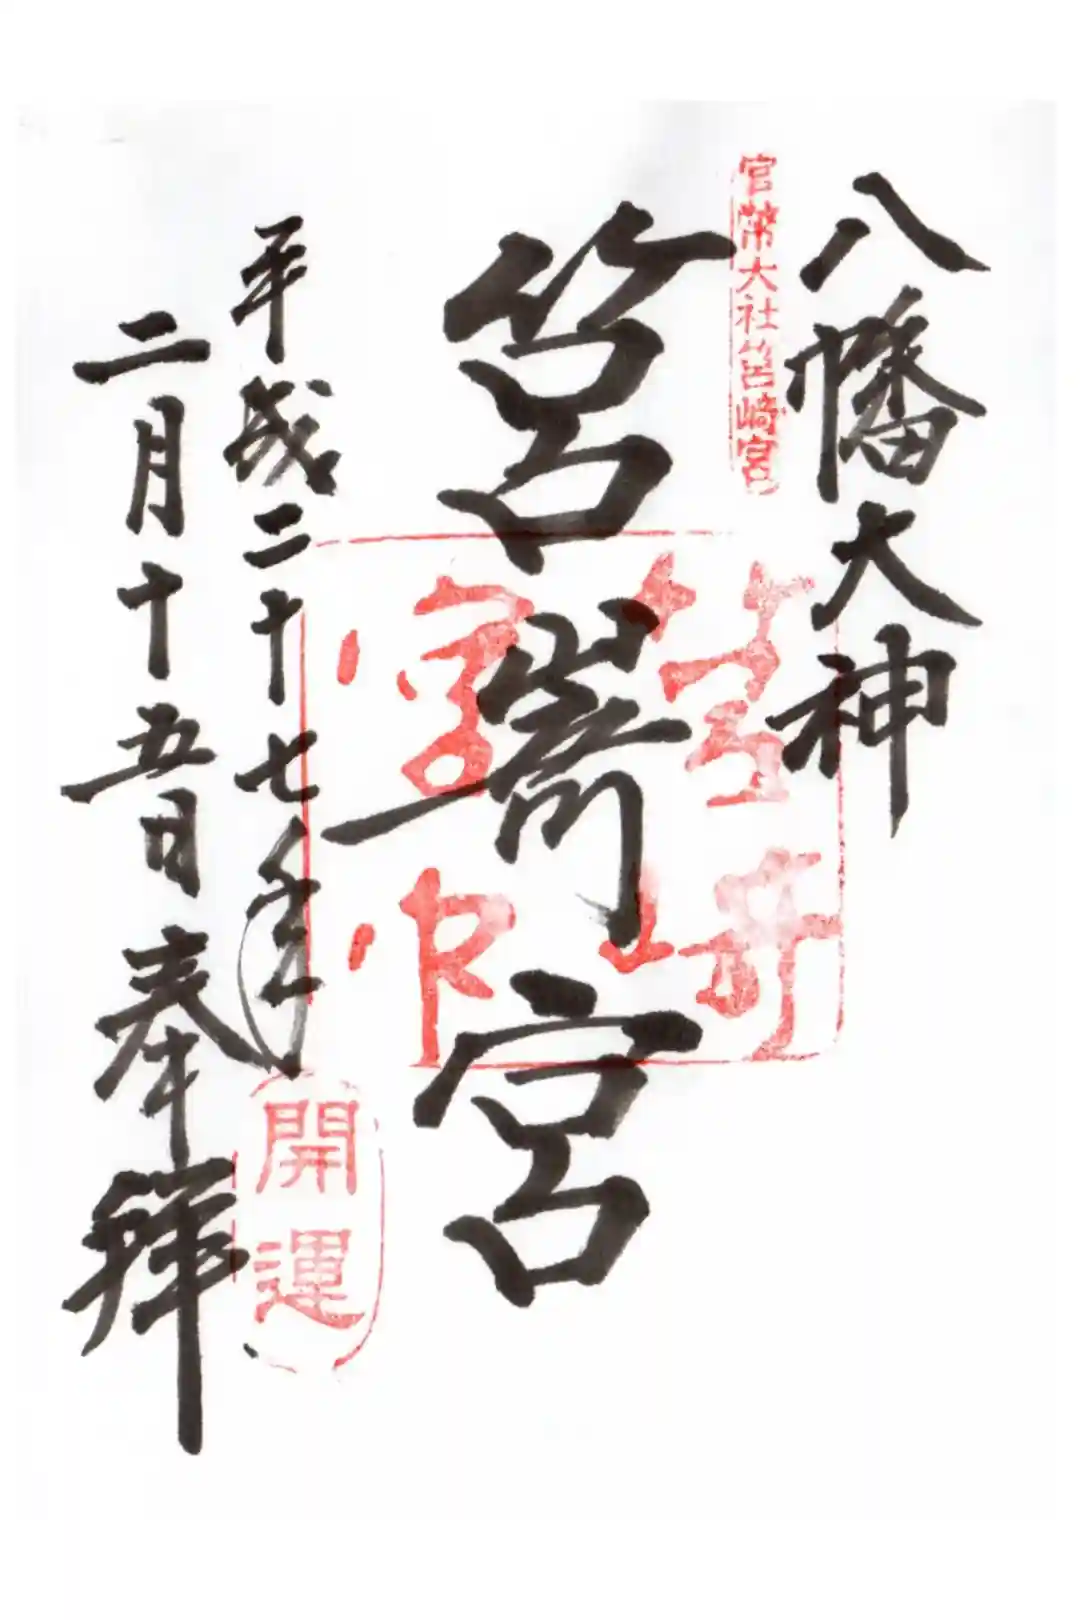 八幡大神
官幣大社筥崎宮
筥嵜宮
筥崎宮印
平成二十七年
二月十五日奉拝
開運